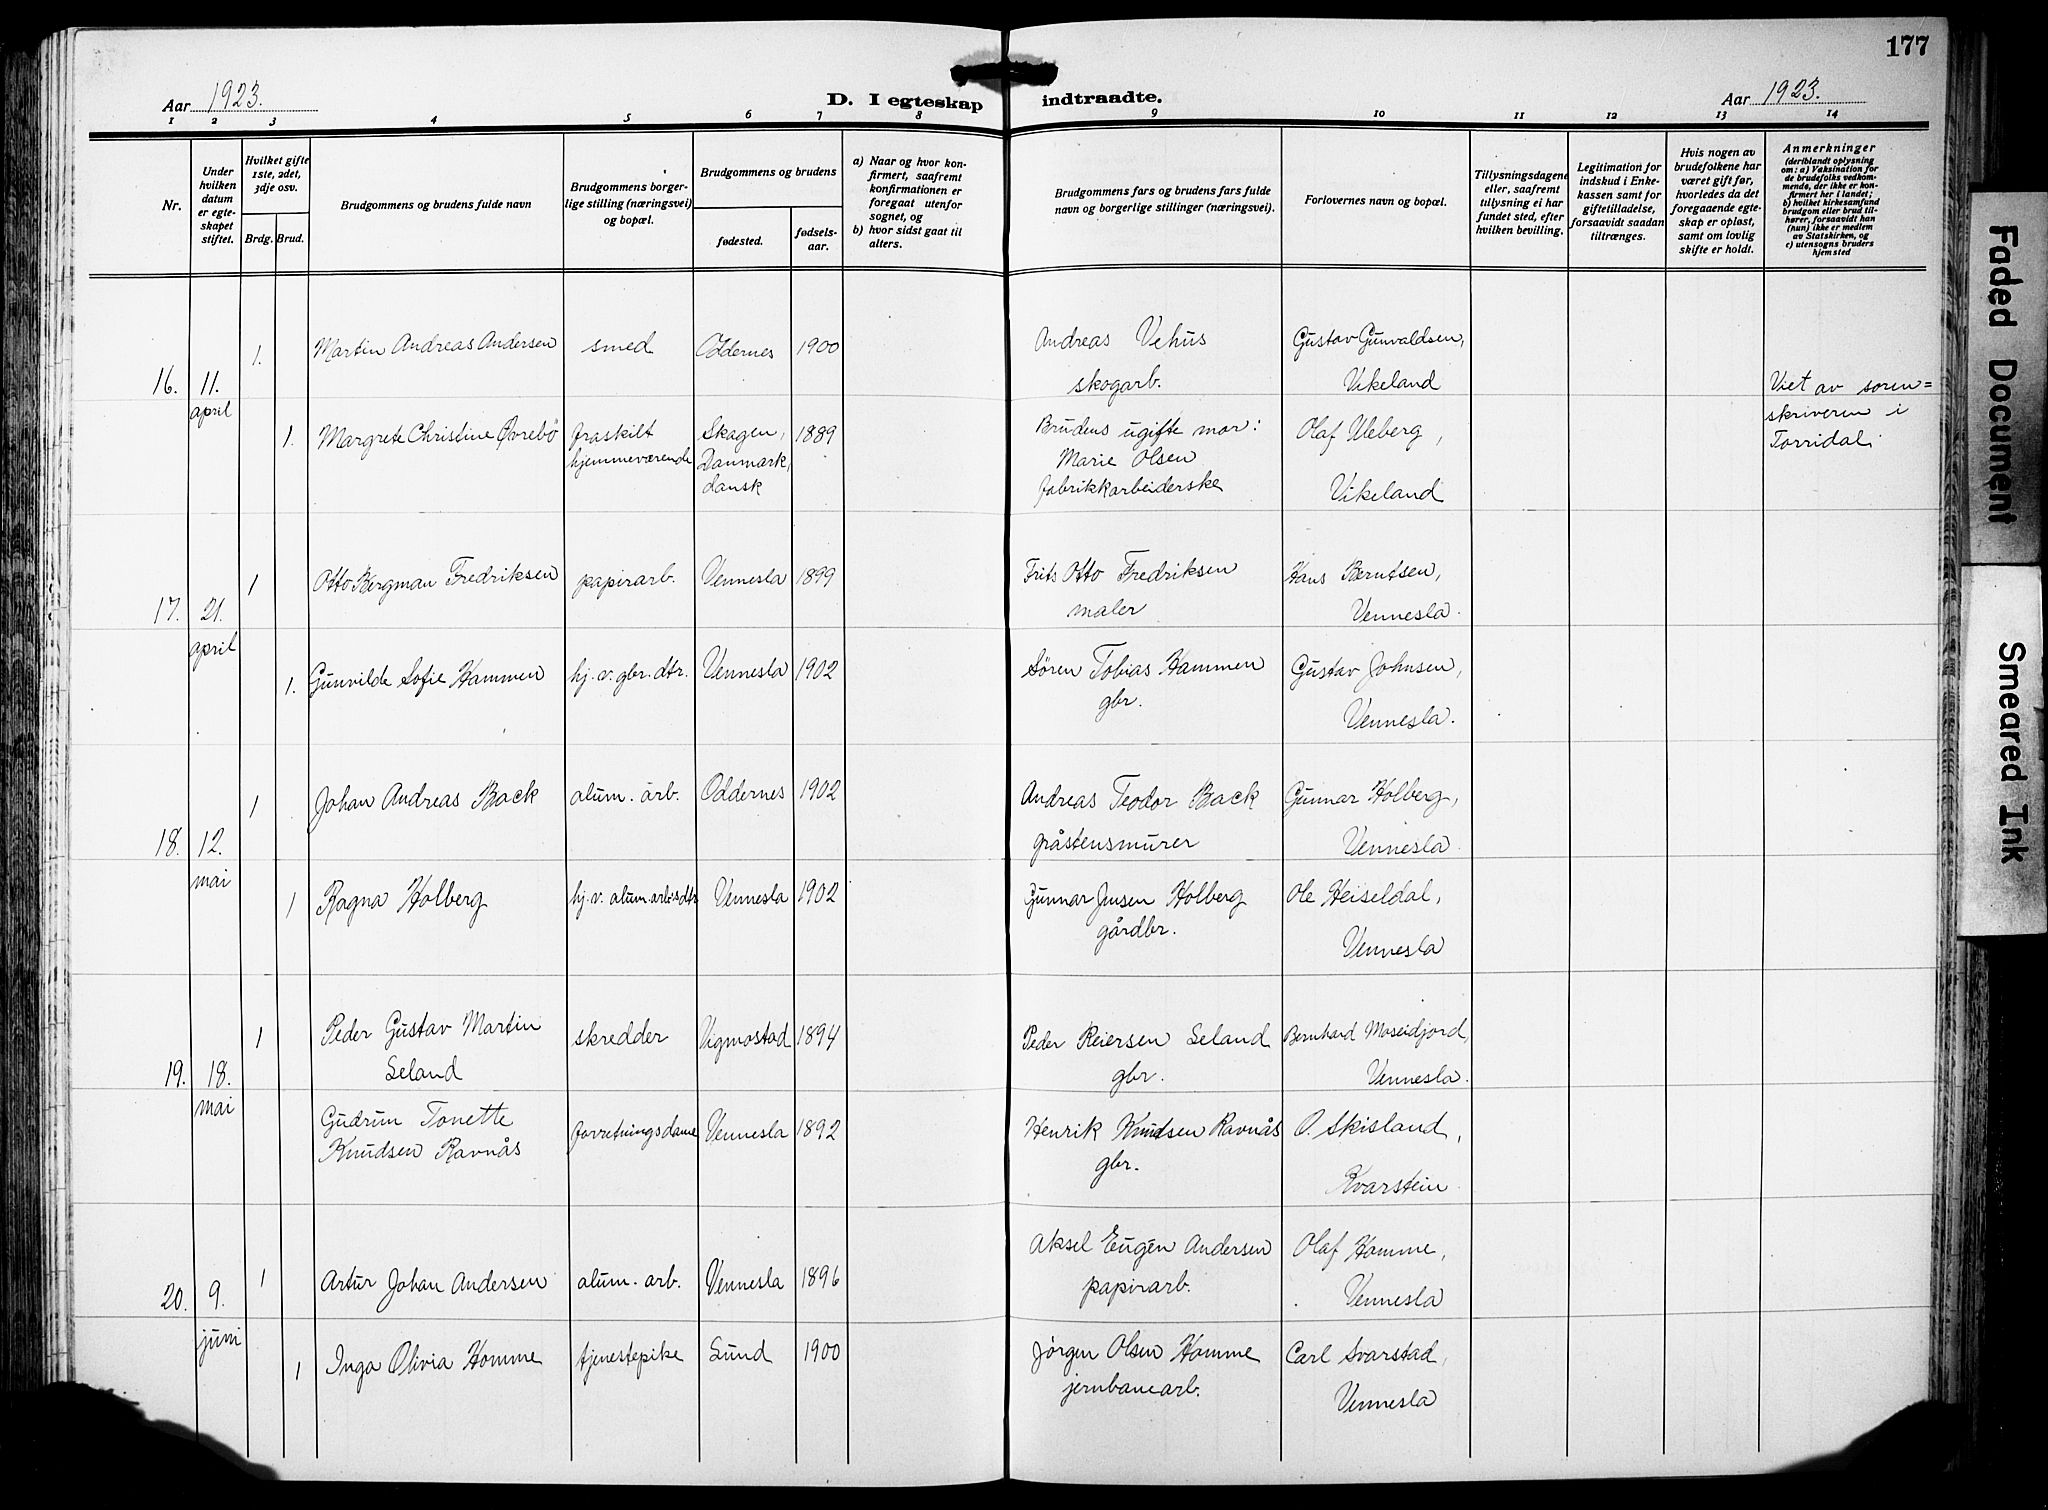 177
Aar 1923.
D. I egteskap indtraadte.
Aar 1923.
1 2 3 4 5 6 7 8 9 10 11 12 13 14
Nr.
Under
hvilken
datum
er egte-
skapet
stiftet.
Hvilket gifte
1ste, 2det,
3dje osv.
Brdg. Brud.
Brudgommens og brudens fulde navn
Brudgommens borger-
lige stilling (næringsvei)
og bopæl.
Brudgommens og brudens
fødested.
fødsels-
aar.
a) Naar og hvor kon-
firmert, saafremt
konfirmationen er
foregaat utenfor
sognet, og
b) hvor sidst gaat til
alters.
Brudgommens fars og brudens fars fulde
navn og borgerlige stillinger (næringsvei).
Forlovernes navn og bopæl.
Tillysningsdagene
eller, saafremt
tillysning ei har
fundet sted, efter
hvilken bevilling.
Legitimation for
indskud i Enke-
kassen samt for
giftetilladelse,
forsaavidt saadan
tiltrænges.
Hvis nogen av
brudefolkene har
været gift før,
hvorledes da det
foregaaende egte-
skap er opløst,
samt om lovlig
skifte er holdt.
Anmerkninger
(deriblandt oplysning
om: a) Vaksination for
de brudefolks vedkom-
mende, der ikke er kon-
firmert her i landet;
b) hvilket kirkesamfund
brudgom eller brud til-
hører, forsaavidt han
(hun) ikke er medlem
av Statskirken, og
c) utensogns bruders
hjemsted
16. 11. april
1. Martin Andreas Andersen smed Oddernes 1900
Andreas Vehus
skogarb.
Gustav Gunvaldsen,
Vikeland
Viet av soren=
skriveren i
Torridal.
1. Margrete Christine Øvrebö
fraskilt
hjemmeværende
Skagen,
Danmark,
dansk
1889
Brudens ugifte mor:
Marie Olsen
fabrikkarbeiderske
Olaf Uleberg,
Vikeland
17. 21. april
1 Otto Bergman Fredriksen papirarb. Vennesla 1899
Frits Otto Fredriksen
maler
Hans Berntsen,
Vennesla.
1. Gunvilde Sofie Hammen hj. v. gbr. dtr. Vennesla 1902
Søren Tobias Hammen
gbr.
Gustav Johnsen,
Vennesla.
18. 12. mai
1 Johan Andreas Back alum. arb. Oddernes 1902
Andreas Teodor Back
gråstensmurer
Gunnar Holberg,
Vennesla.
1 Ragna Holberg hj. v. alum. arb.sdtr Vennesla 1902
Gunnar Jensen Holberg
gårdbr.
Ole Heiseldal,
Vennesla
19. 18. mai
1 Peder Gustav Martin
Seland
skredder Vigmostad 1894
Peder Reiersen Seland
gbr.
Bernhard Moseidjord,
Vennesla.
Gudrun Tonette
Knudsen Ravnås
forretningsdame Vennesla 1892
Henrik Knudsen Ravnås
gbr.
O. Skisland,
Kvarstein
20. 9. juni
1 Artur Johan Andersen alum. arb. Vennesla 1896
Aksel Eugén Andersen
papirarb.
Olaf Homme,
Vennesla
1 Inga Olivia Homme tjenestepike Lund 1900
Jørgen Olsen Homme
jernbanearb.
Carl Svarstad,
Vennesla
Faded Document
Smeared Ink